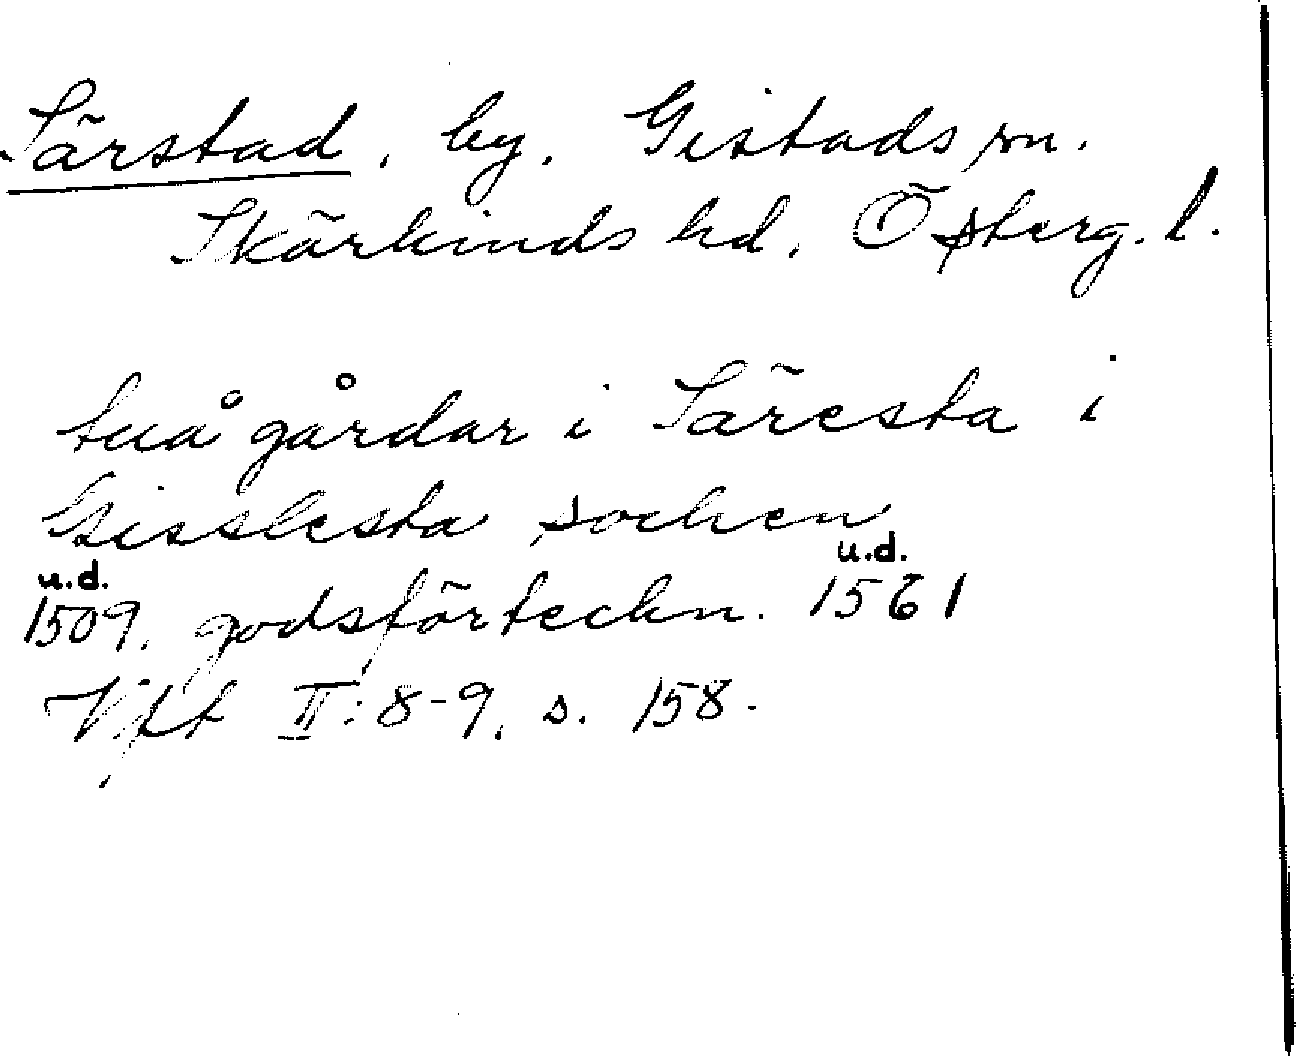 Särstad, by, Gistads sn.
Skärkinds hd, Österg. l.
tuå gårdar i Säresta i
Gisslesta sochen
u.d. u.d.
1509, godsförteckn. 1561
Vftt II:8-9, s. 158.